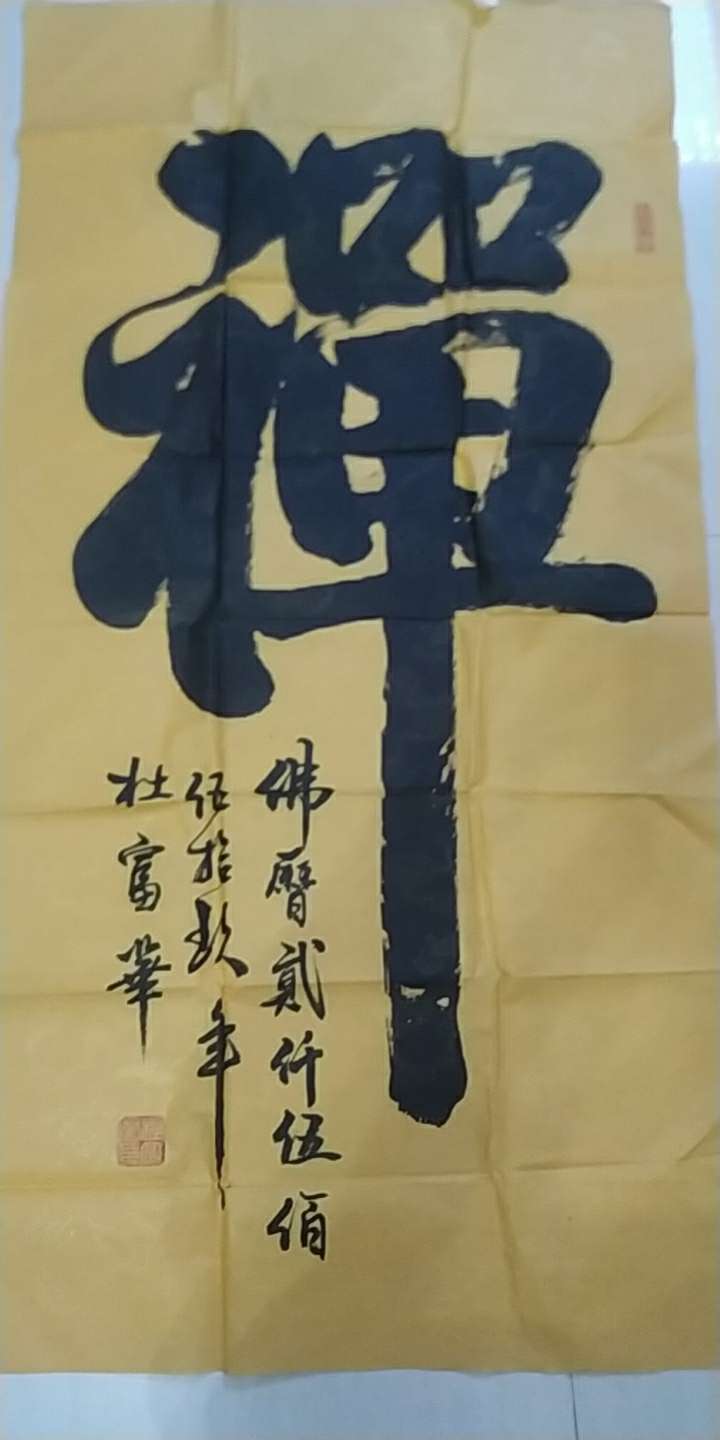 禪
佛曆貳仟伍佰
伍拾玖年
杜富華